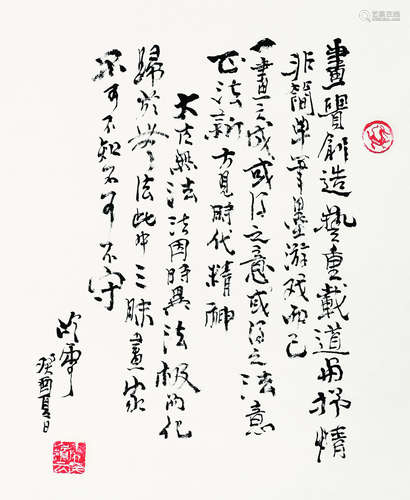 畫貴創造藝重載道用抒情
非簡單筆墨游戏而已
一畫之成或得之意或得之法意
正法新方見時代精神
大 無法法因時異法极而化
歸於無法此中三昧畫家
不可不知不可不守
癸酉夏日
艺典中国